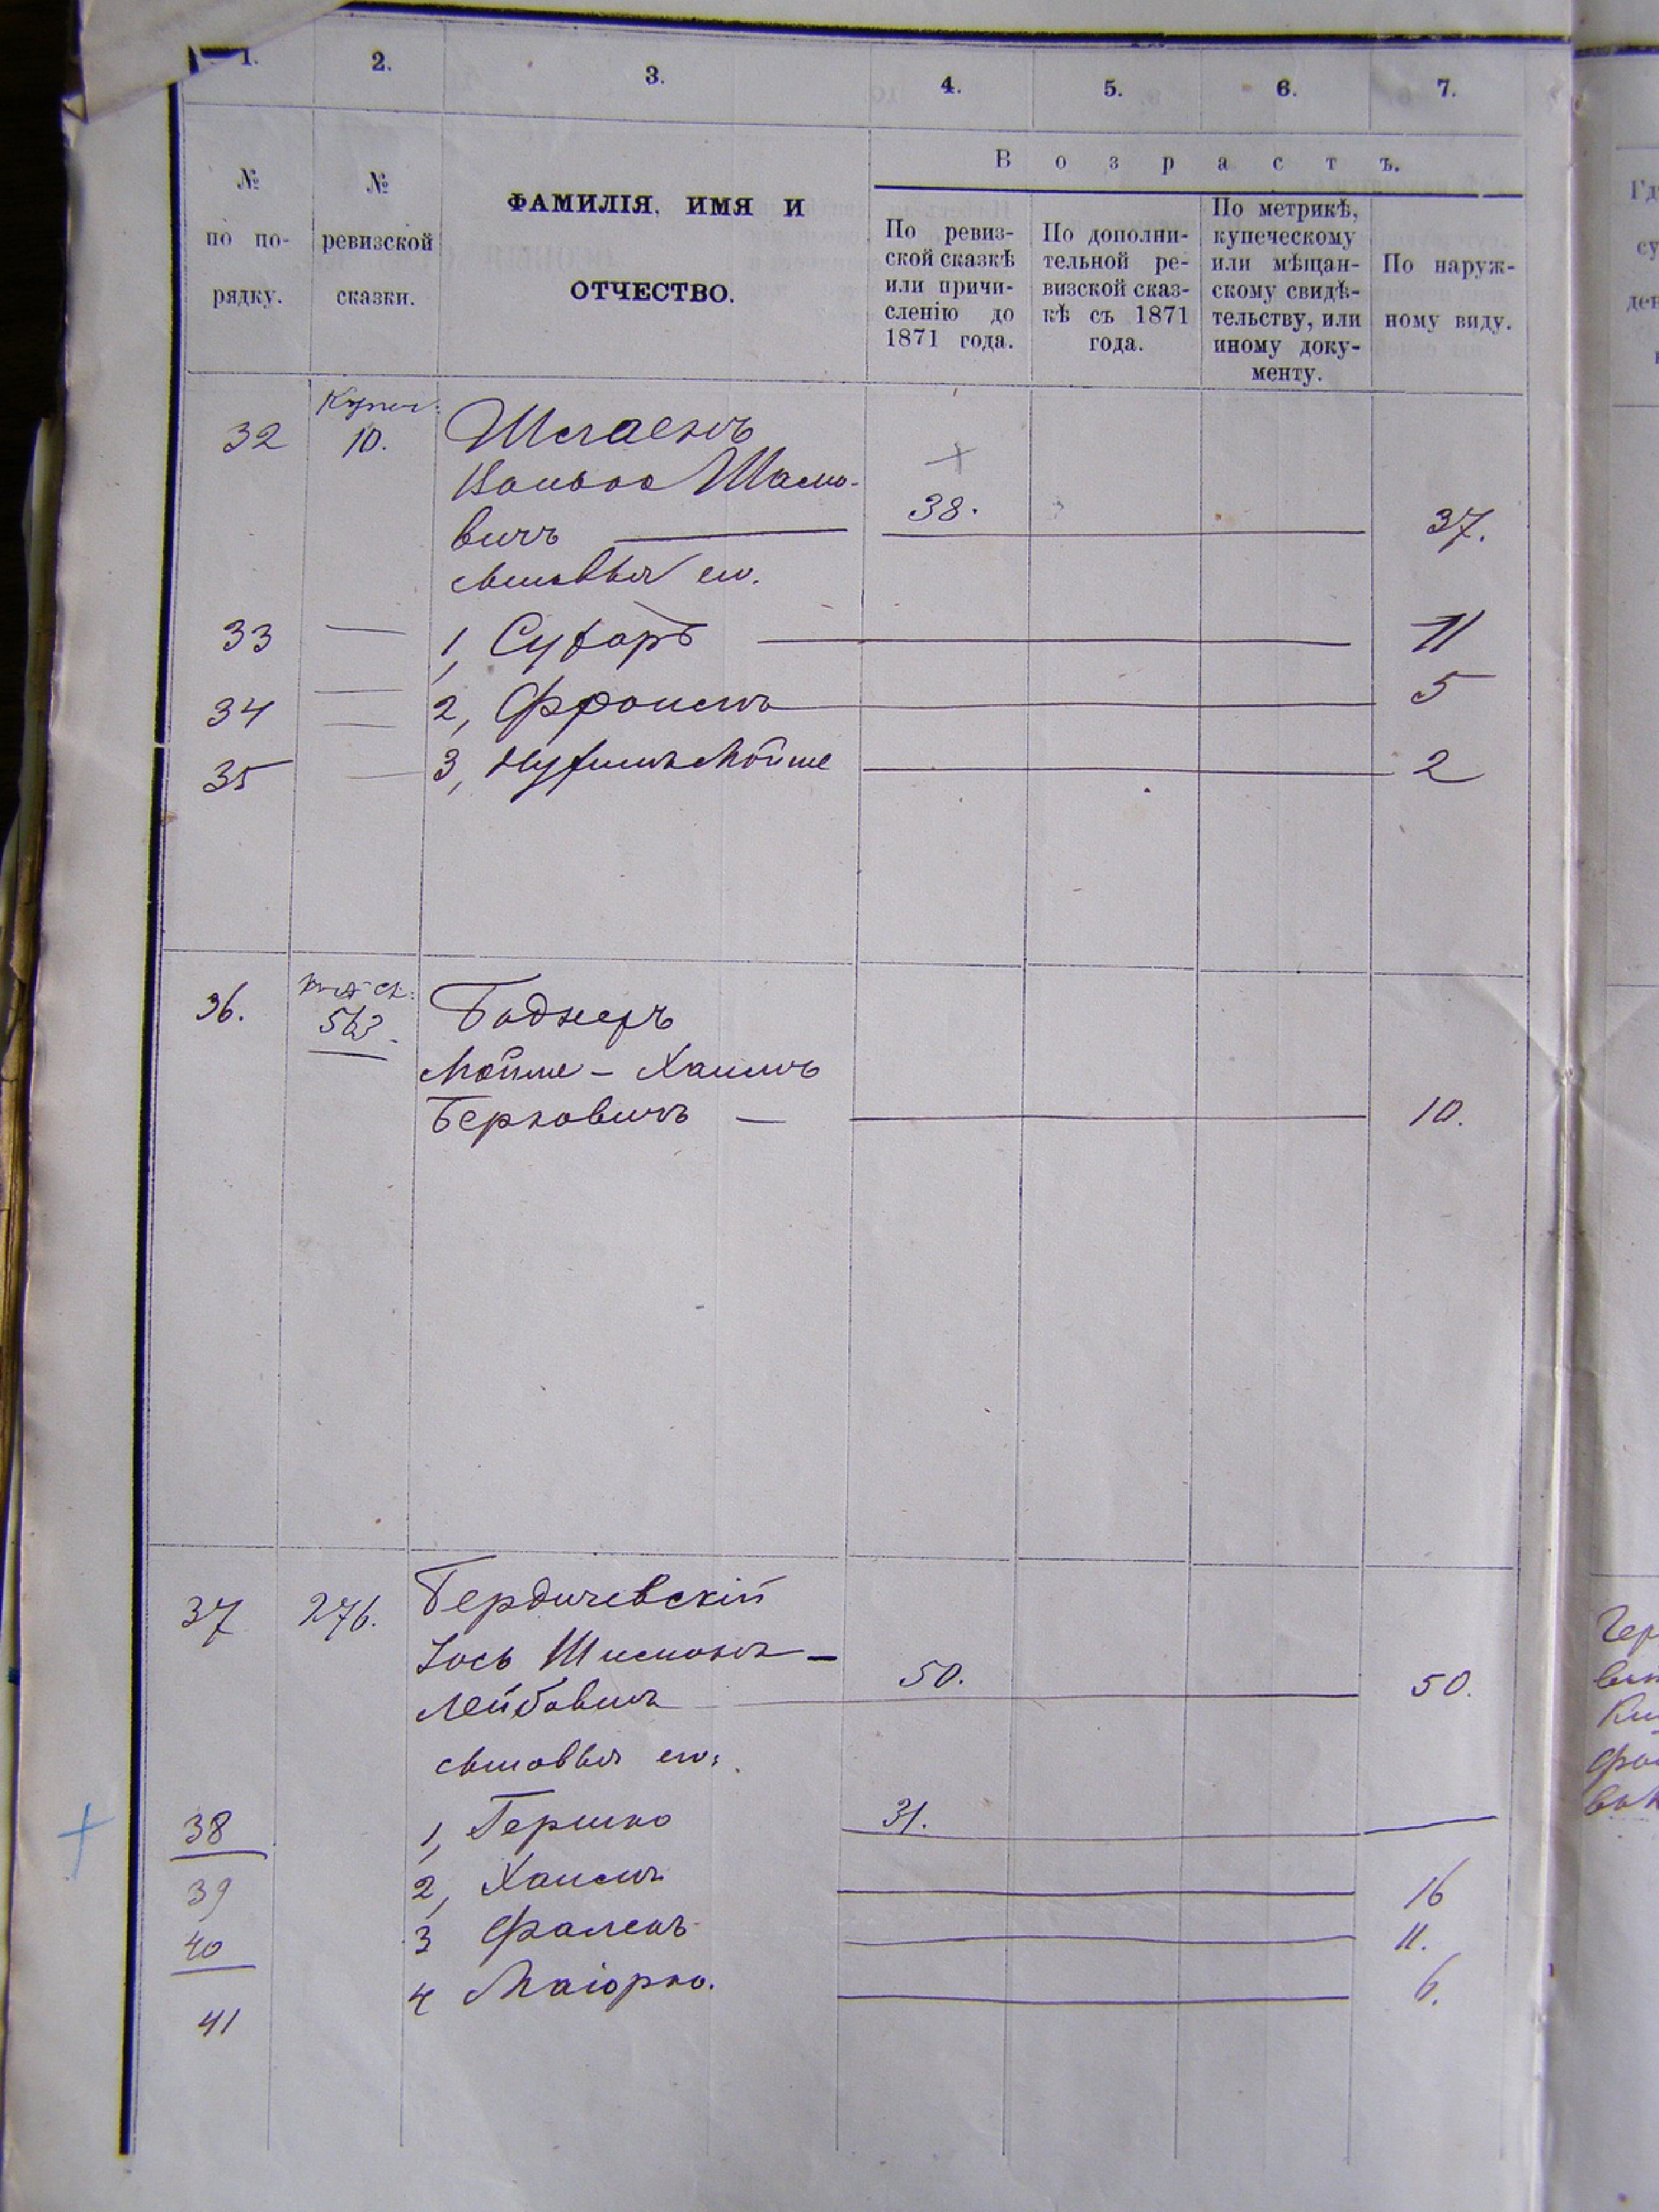 1. 2. 3. 4. 5. 6. 7.
№ по по- рядку.
№ ревизской сказки.
ФАМИЛІЯ, ИМЯ И
ОТЧЕСТВО.
Возрастъ.
По ревиз-
ской сказкѣ
или причи-
сленію до
1871 года.
По дополни-
тельной ре-
визской сказ-
кѣ съ 1871
года.
По метрикѣ,
купеческому
или мѣщан-
скому свидѣ-
тельству, или
иному доку-
менту.
По наруж-
ному виду.
32 Купеч: 10.
Волько Шамо-
вичъ 38. 37.
сыновья его.
33 1, Сухоръ 11
34 2, Фроимъ 5
35 3, Нухимъ Мойше 2
36. 563. Боднеръ
Мойше - Хаимъ
Берковичъ 10.
37 276. Бердичевскій
Іось Шимонъ-
Лейбовичъ 50. 50.
сыновья его:
38 1, Гершко 31.
39 2, Хаимъ 16
40 3 Фалекъ 11.
41 4 Маіорко. 6.